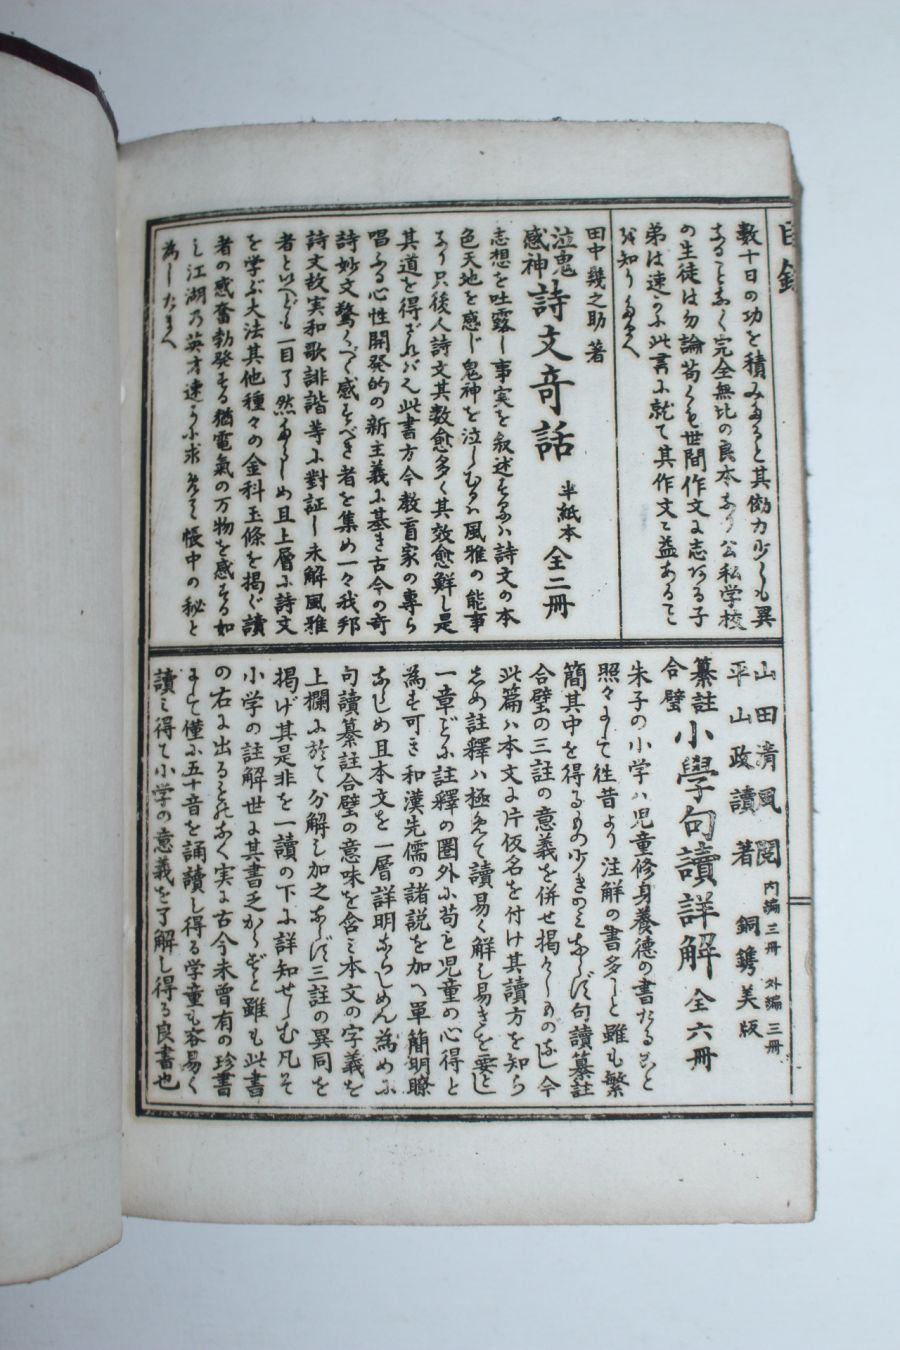 目錄
数十日の功を積みたると其効力少しも異
なることなく完全無比の良本なり公私学校
の生徒は勿論苟くも世間作文に志ある子
弟は速かに此書に就て其作文に益あるこ
とを知り給へ
田中幾之助著
泣鬼感神 詩文奇話 半紙本 全二冊
志想を吐露し事実を叙述するハ詩文の本
色天地を感じ鬼神を泣しむるハ風雅の能事
なり只後人詩文其数愈多く其效愈鮮し是
其道を得ざれバなり此書方今教育家の専ら
唱ふる心性開発的の新主義に基き古今の奇
詩妙文驚くべく感ずべき者を集め一々我邦
詩文故実和歌誹諧等に對証し未解風雅
者といへども一目了然たらしめ且上層に詩文
を学ぶ大法其他種々の金科玉條を掲ぐ讀
者の感奮勃発する猶電氣の万物を感ずる如
し江湖乃英才速かに求めて帳中の秘と
為したまへ
山田清風閲 内編三冊 外編三冊
平山政瀆著 銅鐫美版
纂註合璧 小學句讀詳解 全六冊
朱子の小学ハ児童修身養徳の書たること
照々として徃昔より注解の書多しと雖も繁
簡其中を得るもの少きのみならず句讀纂註
合璧の三註の意義を併せ掲げしものなし今
此篇ハ本文に片仮名を付け其讀方を知ら
しめ註釋ハ極めて讀易く解し易きを要し
一章ごとに註釋の圏外に苟も児童の心得と
為す可き和漢先儒の諸説を加へ單簡明瞭
ならしめ且本文を一層詳明ならしめん為めに
句讀纂註合璧の意味を含ミ本文の字義を
上欄に於て分解し加之ならず三註の異同を
掲げ其是非を一讀の下に詳知せしむ凡そ
小学の註解世に其書乏からずと雖も此書
の右に出るものなく実に古今未曾有の珍書
にして僅に五十音を誦讀し得る学童も容易く
讀ミ得て小学の意義を了解し得る良書也